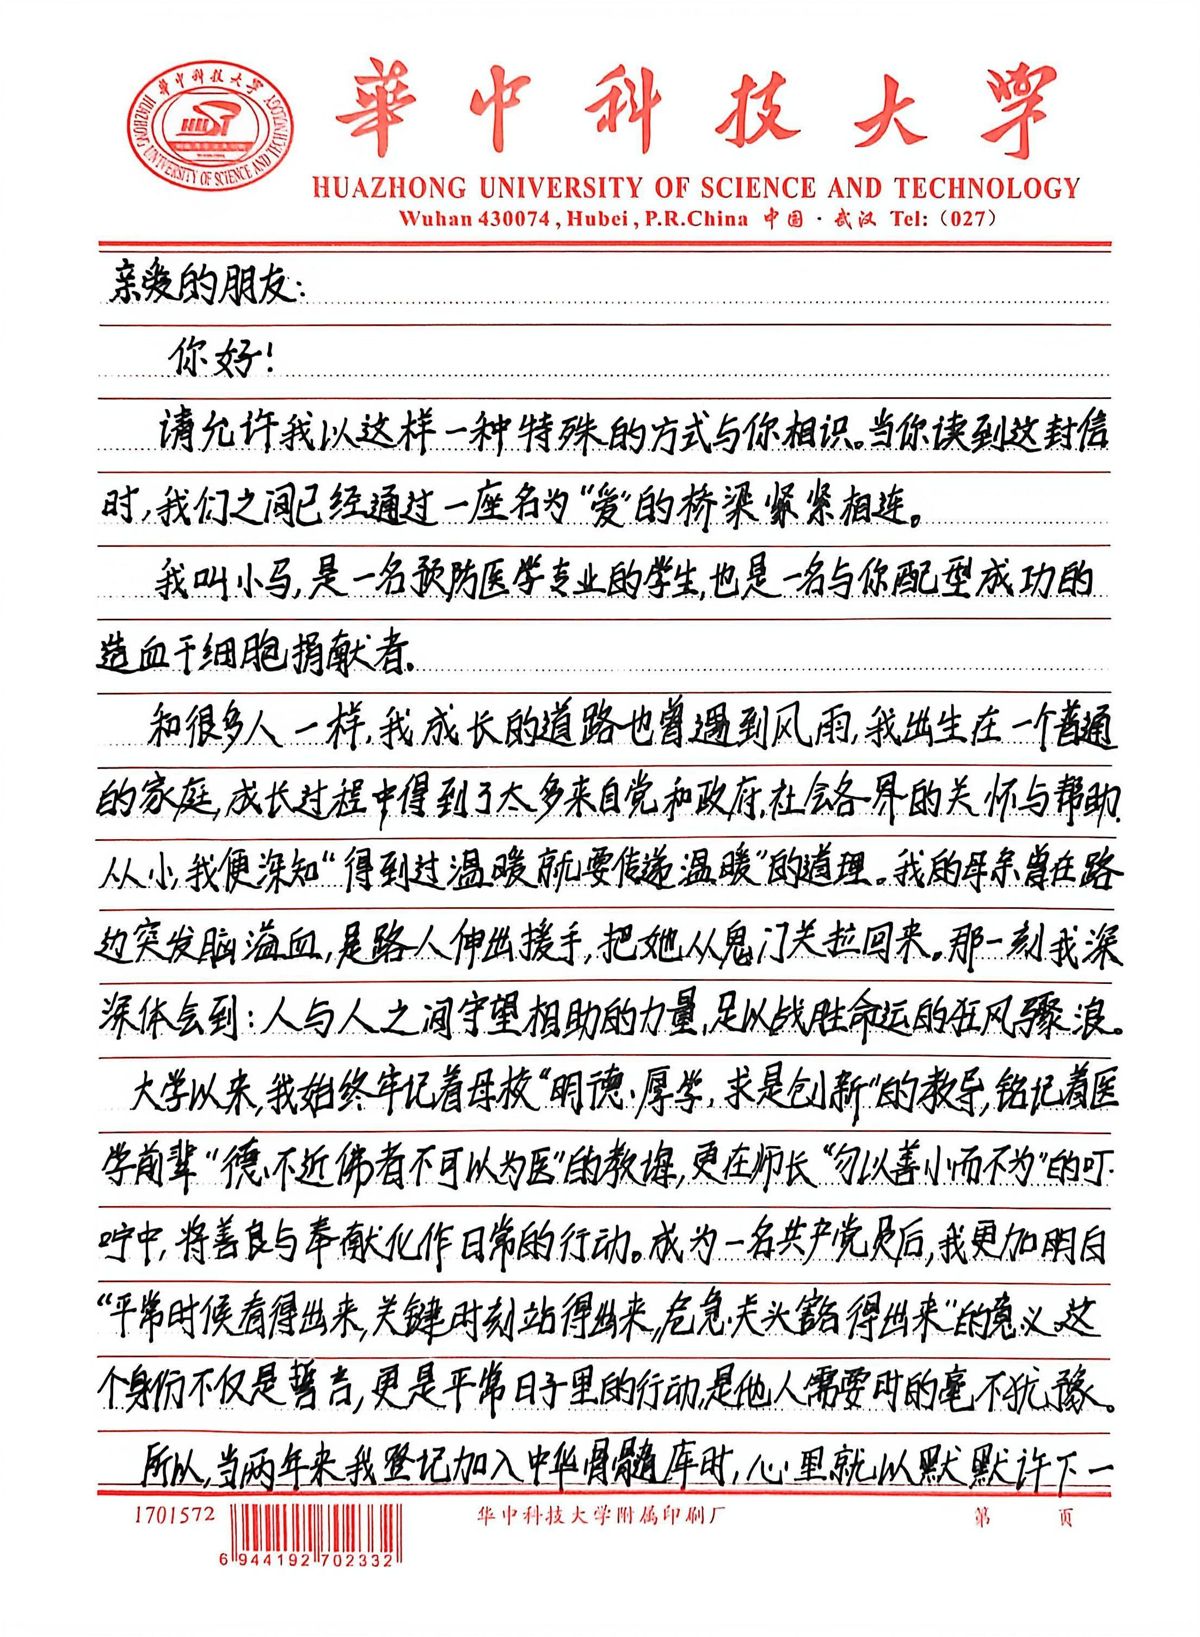 華中科技大学
HUAZHONG UNIVERSITY OF SCIENCE AND TECHNOLOGY
Wuhan 430074, Hubei, P.R.China 中国·武汉 Tel:（027）
华中科技大学
HUAZHONG UNIVERSITY OF SCIENCE AND TECHNOLOGY
HUST
亲爱的朋友：
你好！
请允许我以这样一种特殊的方式与你相识。当你读到这封信
时，我们之间已经通过一座名为“爱”的桥梁紧紧相连。
我叫小马，是一名预防医学专业的学生，也是一名与你配型成功的
造血干细胞捐献者。
和很多人一样，我成长的道路也曾遇到风雨，我出生在一个普通
的家庭，成长过程中得到了太多来自党和政府，社会各界的关怀与帮助，
从小，我便深知“得到过温暖就要传递温暖”的道理。我的母亲曾在路
边突发脑溢血，是路人伸出援手，把她从鬼门关拉回来。那一刻我深
深体会到：人与人之间守望相助的力量，足以战胜命运的狂风骤浪。
大学以来，我始终牢记着母校“明德、厚学，求是创新”的教导，铭记着医
学前辈“德不近佛者不可以为医”的教诲，更在师长“勿以善小而不为”的叮
咛中，将善良与奉献化作日常的行动。成为一名共产党员后，我更加明白
“平常时候看得出来，关键时刻站得出来，危急关头豁得出来”的意义，这
个身份不仅是誓言，更是平常日子里的行动，是他人需要时的毫不犹豫。
所以，当两年来我登记加入中华骨髓库时，心里就以默默许下一
1701572
华中科技大学附属印刷厂
第 页
6 944192 702332